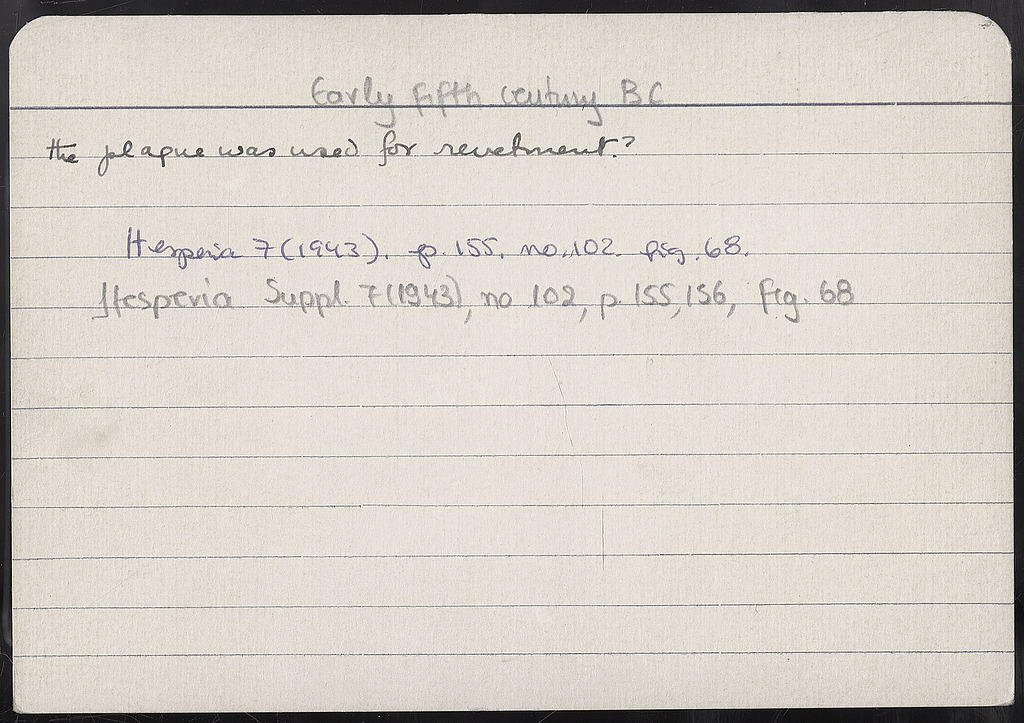 Early fifth century BC
the plaque was used for revetment?
Hesperia 7 (1943). p. 155. no. 102. fig. 68.
Hesperia Suppl. 7 (1943), no 102, p. 155, 156, fig. 68